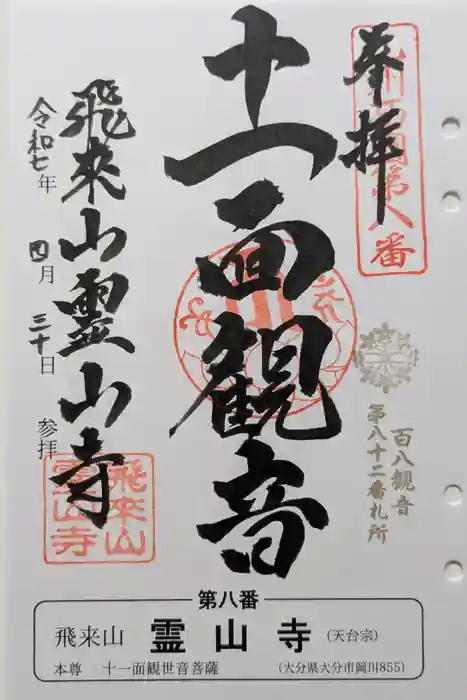 奉拝
九州西国第八番
百八観音
第八十二番札所
十一面観音
飛來山霊山寺
飛來山
霊山寺
令和七年 四月 三十日 参拝
第八番
飛来山 霊山寺 (天台宗)
本尊 十一面観世音菩薩 (大分県大分市岡川855)